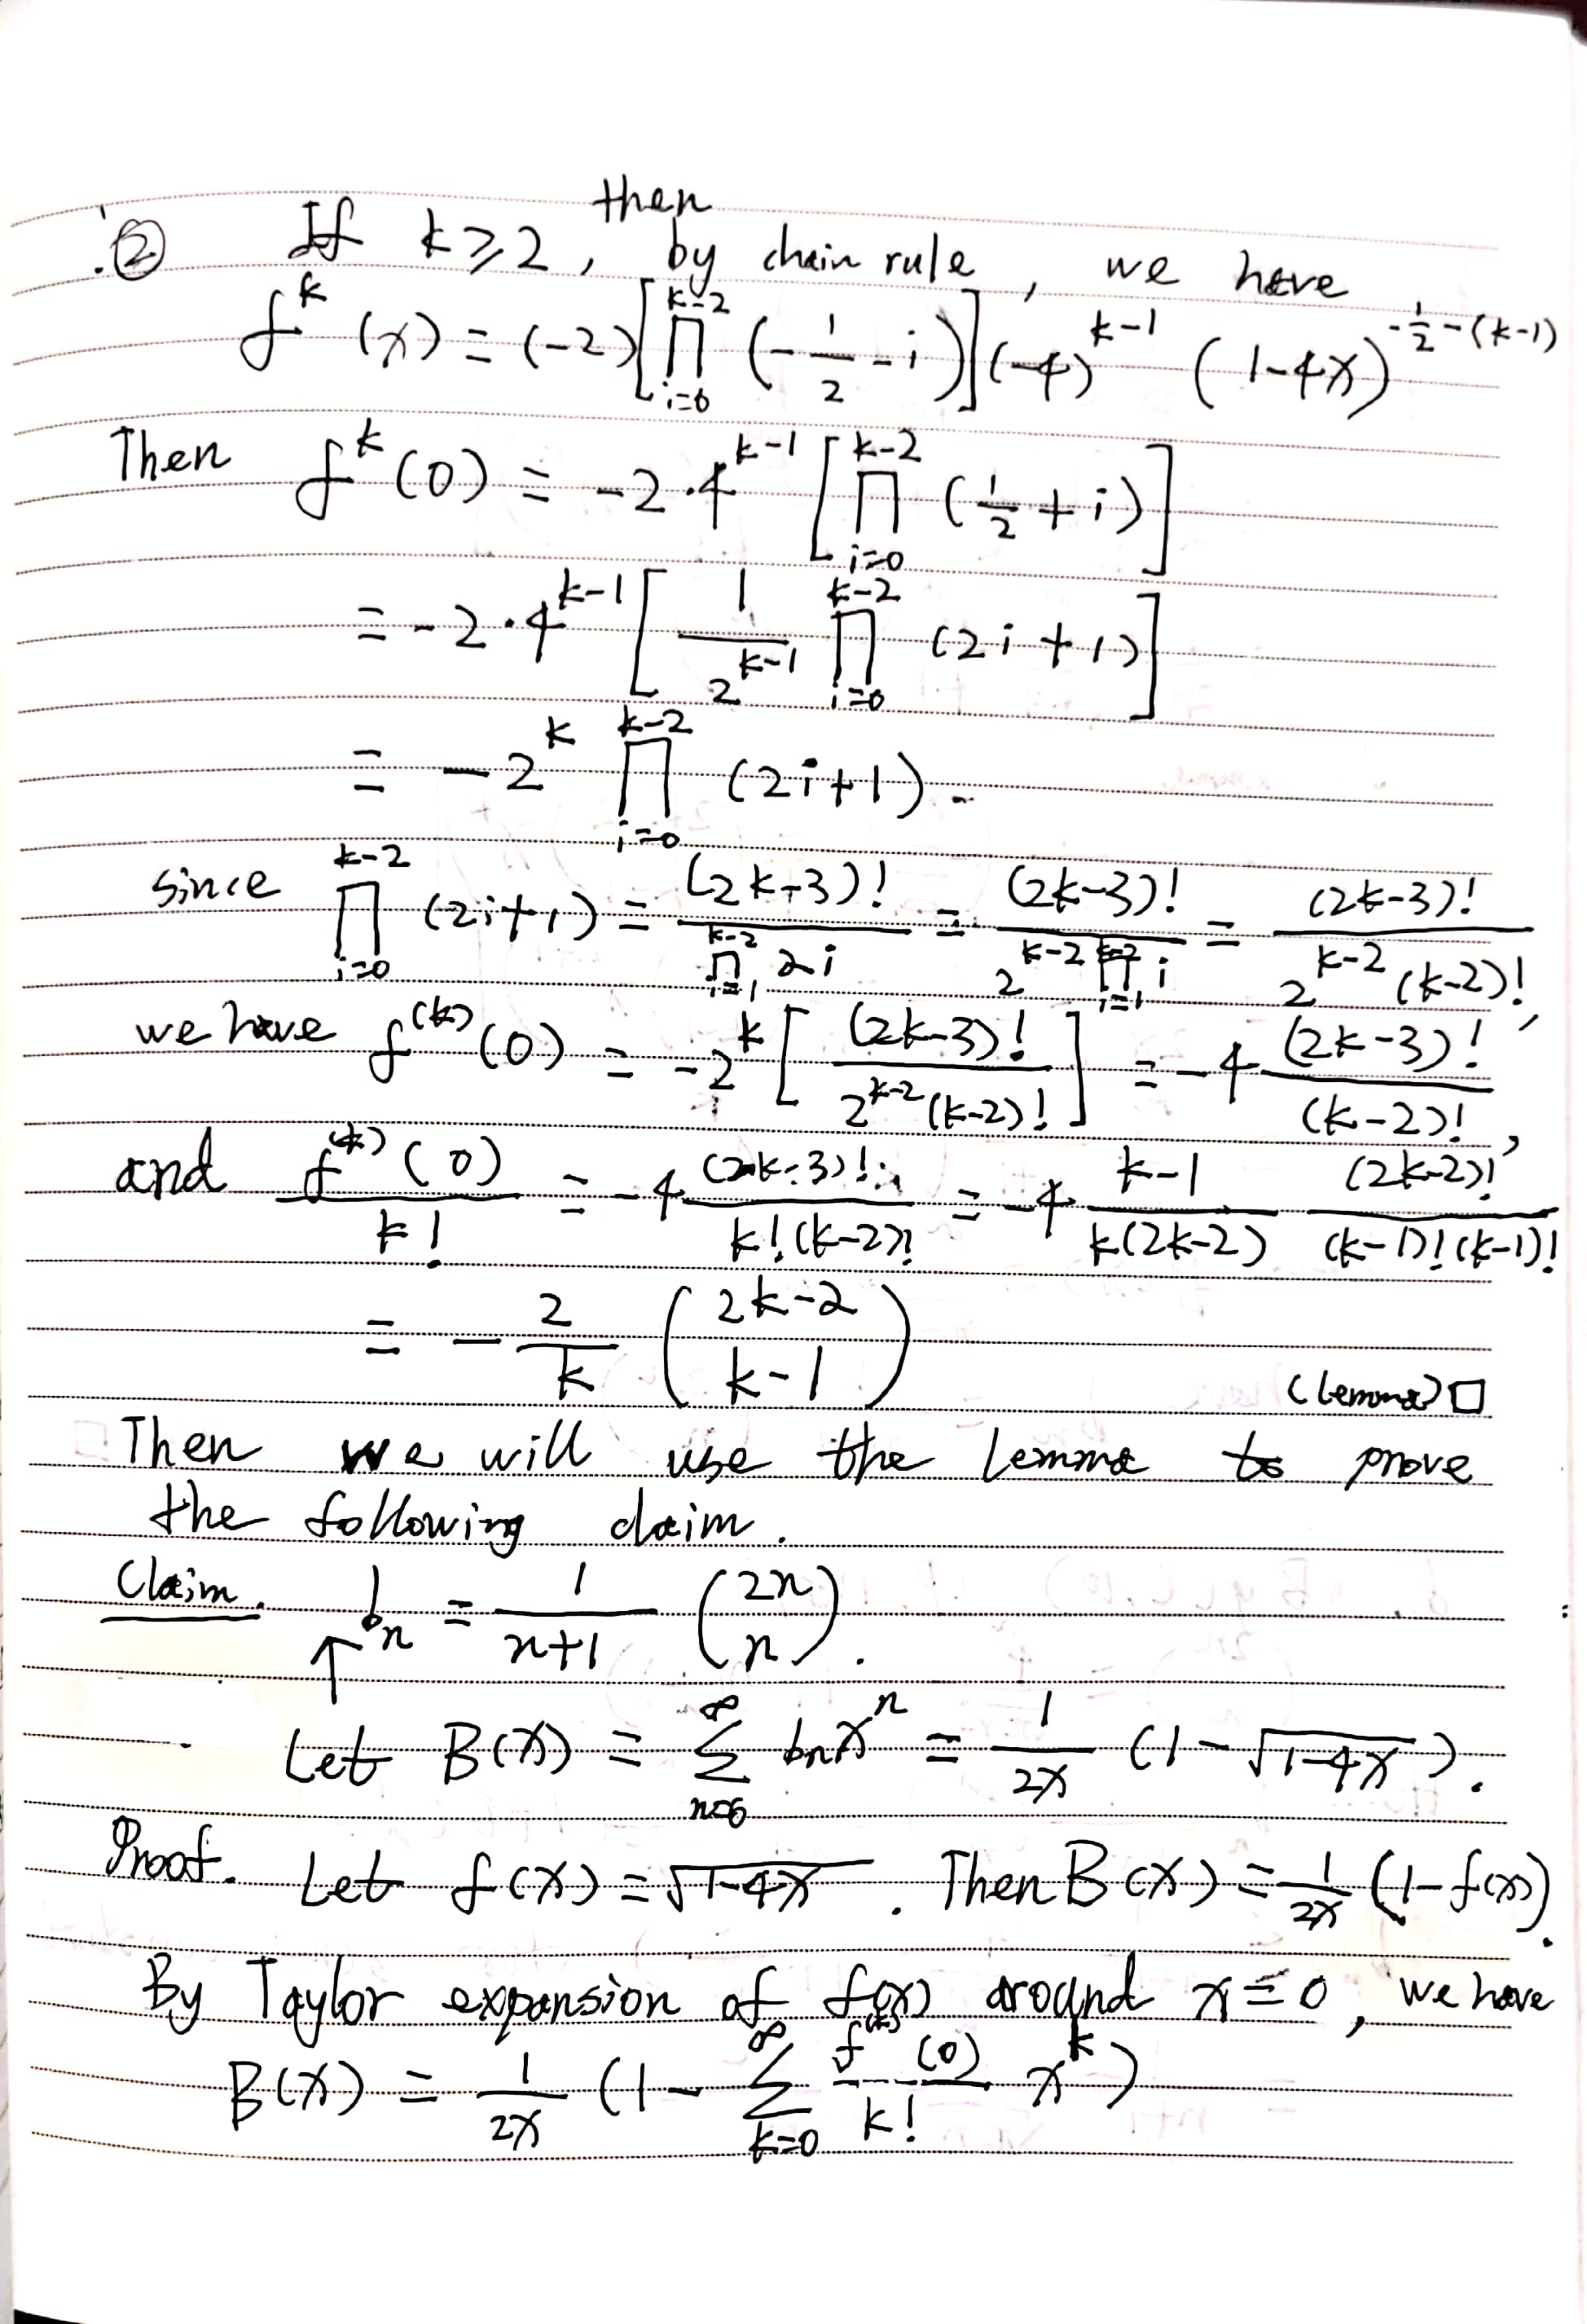 ② If k ≥ 2, then by chain rule, we have
f^k (x) = (-2) [∏_{i=0}^{k-2} (-1/2 - i)] (-4)^{k-1} (1-4x)^{-1/2-(k-1)}
Then f^k (0) = -2·4^{k-1} [∏_{i=0}^{k-2} (1/2 + i)]
= -2·4^{k-1} [1/2^{k-1} ∏_{i=0}^{k-2} (2i+1)]
= -2^k ∏_{i=0}^{k-2} (2i+1).
since ∏_{i=0}^{k-2} (2i+1) = (2k-3)! / ∏_{i=1}^{k-2} 2i = (2k-3)! / 2^{k-2} ∏_{i=1}^{k-2} i = (2k-3)! / 2^{k-2} (k-2)!,
we have f^{(k)} (0) = -2^k [(2k-3)! / 2^{k-2} (k-2)!] = -4 (2k-3)! / (k-2)!,
and f^{(k)} (0) / k! = -4 (2k-3)! / k! (k-2)! = -4 (k-1) / k(2k-2) (2k-2)! / (k-1)! (k-1)!
= - 2/k (2k-2 choose k-1)
(Lemma) □
Then we will use the Lemma to prove
the following claim.
Claim. b_n = 1/(n+1) (2n choose n).
↑
Let B(x) = ∑_{n=0}^{∞} b_n x^n = 1/2x (1 - √(1-4x)).
Proof. Let f(x) = √(1-4x). Then B(x) = 1/2x (1-f(x)).
By Taylor expansion of f(x) around x = 0, we have
B(x) = 1/2x (1 - ∑_{k=0}^{∞} f^{(k)} (0) / k! x^k)